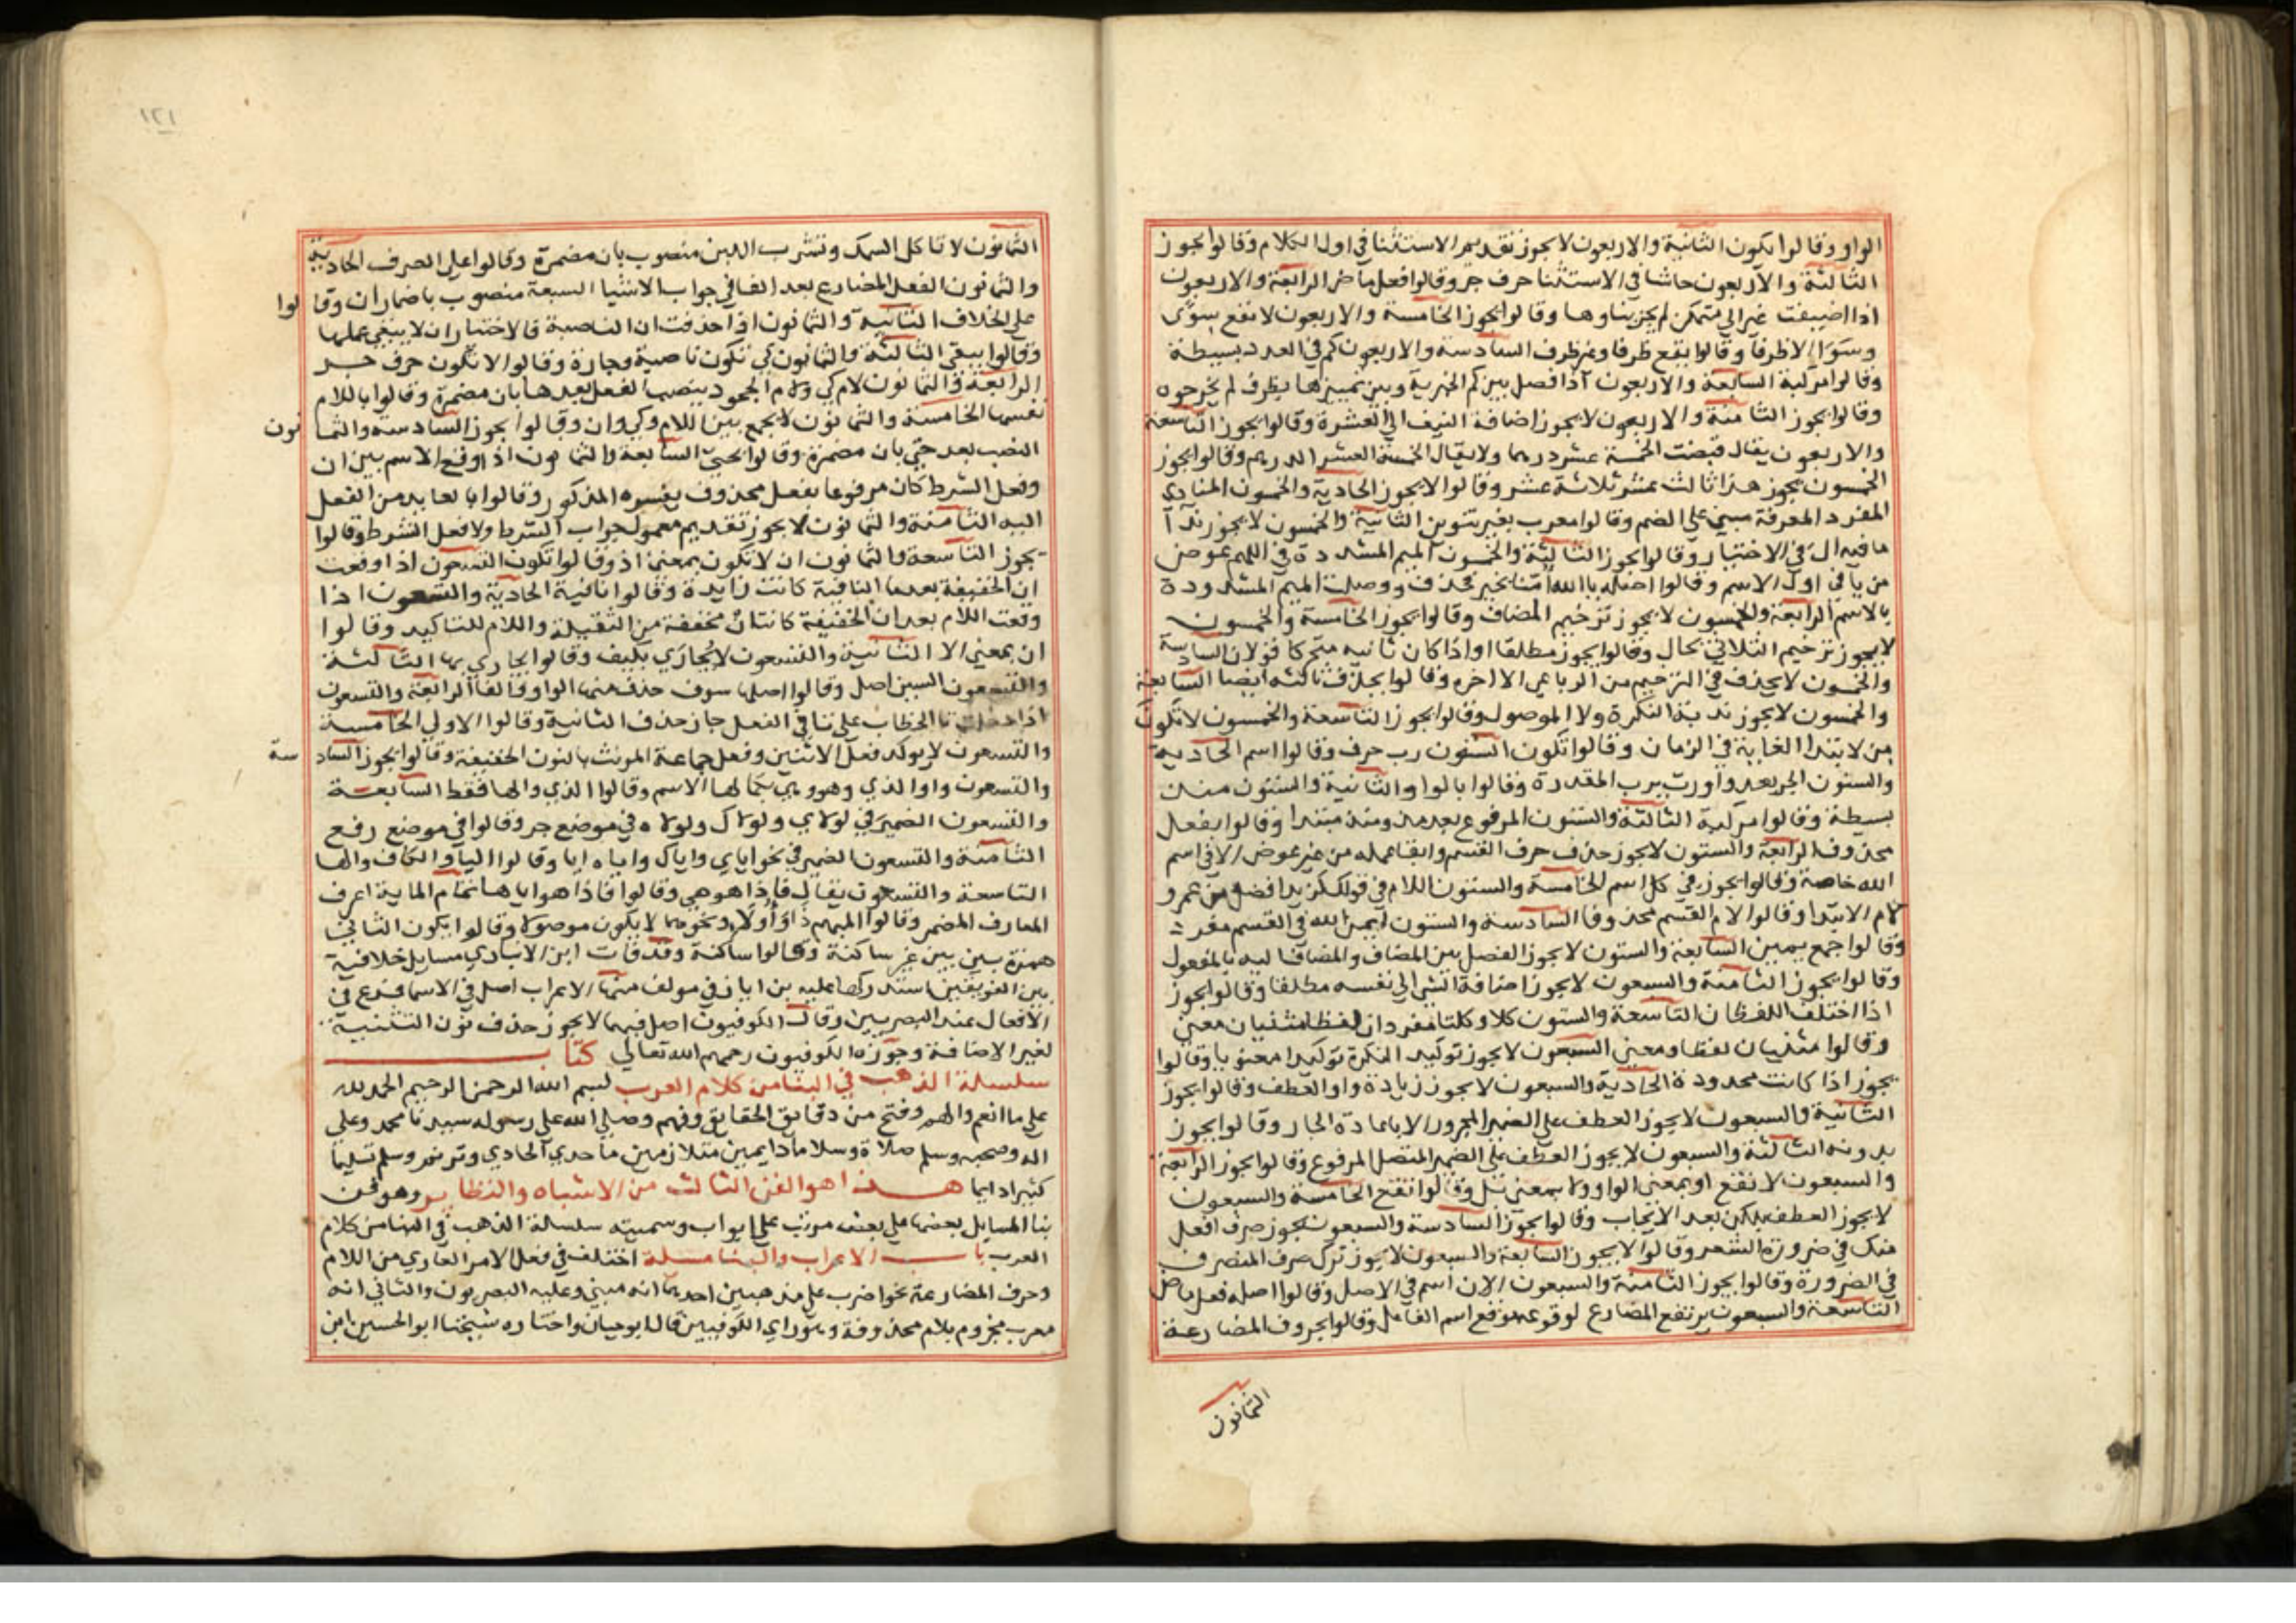 الواو وقالوا يكون الثانية والاربعون لا يجوز تقديم الاستثنا في اول الكلام وقالوا يجوز
الثالثة والاربعون حاشا في الاستثنا حرف جر وقالوا فعل ماض الرابعة والاربعون
اذا اضيفت غير الى متمكن لم يجز بناوها وقالوا يجوز الخامسة والاربعون لا تقع سوى
وسوا الا ظرفا وقالوا يقع ظرفا وغير ظرف السادسة والاربعون كم في العدد بسيطة
وقالوا مركبة السابعة والاربعون اذا فصل بين كم الخبرية وبين تمييزها بظرف لم يجز جره
وقالوا يجوز الثامنة والاربعون لا يجوز اضافة النيف الى العشرة وقالوا يجوز التاسعة
والاربعون يقال قبضت الخمسة عشر درهما ولا يقال الخمسة العشر الدرهم وقالوا يجوز
الخمسون يجوز هذا ثالث عشر ثلاثة عشر وقالوا لا يجوز الحادية والخمسون المنادى
المفرد المعرفة مبني على الضم وقالوا معرب بغير تنوين الثانية والخمسون لا يجوز ندا
ما فيه ال في الاختيار وقالوا يجوز الثالثة والخمسون الميم المشددة في اللهم عوض
من يا في اول الاسم وقالوا اصله يا الله امنا بخير فحذف ووصلت الميم المشدودة
بالاسم الرابعة والخمسون لا يجوز ترخيم المضاف وقالوا يجوز الخامسة والخمسون
لا يجوز ترخيم الثلاثي بحال وقالوا يجوز مطلقا او اذا كان ثانيه متحركا قولان السادسة
والخمسون لا يحذف في الترخيم من الرباعي الا اخره وقالوا يحذف ثالثه ايضا السابعة
والخمسون لا يجوز ندبة النكرة ولا الموصول وقالوا يجوز التاسعة والخمسون لا تكون
من لابتدا الغاية في الزمان وقالوا تكون الستون رب حرف وقالوا اسم الحادية
والستون الجر بعد واو رب برب المقدرة وقالوا بالواو الثانية والستون منذ
بسيطة وقالوا مركبة الثالثة والستون المرفوع بعد مذ ومنذ مبتدا وقالوا بفعل
محذوف الرابعة والستون لا يجوز حذف حرف القسم وابقا عمله من غير عوض الا في اسم
الله خاصة وقالوا يجوز في كل اسم الخامسة والستون اللام في قولك لزيد افضل من عمرو
لام الابتدا وقالوا لام القسم محذوفا السادسة والستون ايمن الله في القسم مفرد
وقالوا جمع يمين السابعة والستون لا يجوز الفصل بين المضاف والمضاف اليه بالمفعول
وقالوا يجوز الثامنة والسبعون لا يجوز اضافة الشي الى نفسه مطلقا وقالوا يجوز
اذا اختلف اللفظان التاسعة والستون كلا وكلتا مفردان لفظا مثنيان معنى
وقالوا مثنيان لفظا ومعنى السبعون لا يجوز توكيد النكرة توكيدا معنويا وقالوا
يجوز اذا كانت محدودة الحادية والسبعون لا يجوز زيادة واو العطف وقالوا يجوز
الثانية والسبعون لا يجوز العطف على الضمير المجرور الا باعادة الجار وقالوا يجوز
بدونه الثالثة والسبعون لا يجوز العطف على الضمير المتصل المرفوع وقالوا يجوز الرابعة
والسبعون لا تقع او بمعنى الواو ولا بمعنى بل وقالوا تقع الخامسة والسبعون
لا يجوز العطف بلكن بعد الايجاب وقالوا يجوز السادسة والسبعون يجوز صرف افعل
منك في ضرورة الشعر وقالوا لا يجوز السابعة والسبعون لا يجوز ترك صرف المنصرف
في الضرورة وقالوا يجوز الثامنة والسبعون الان اسم في الاصل وقالوا اصله فعل ماض
التاسعة والسبعون يرتفع المضارع لوقوعه موقع اسم الفاعل وقالوا بحروف المضارعة
الثمانون
١٢١
الثمانون لا تاكل السمك وتشرب اللبن منصوب بان مضمرة وقالوا على الصرف الحادية
والثمانون الفعل المضارع بعد الفا في جواب الاشيا السبعة منصوب باضمار ان وقالوا
على الخلاف الثانية والثمانون اذا حذفت ان الناصبة فالاختيار ان لا يبقى عملها
وقالوا يبقى الثالثة والثمانون كي تكون ناصبة وجارة وقالوا لا تكون حرف جر
الرابعة والثمانون لام كي ولام الجحود ينصب الفعل بعدها بان مضمرة وقالوا باللام
نفسها الخامسة والثمانون لا يجمع بين اللام وكي وان وقالوا يجوز السادسة والثمانون
النصب بعد حتى بان مضمرة وقالوا بحتى السابعة والثمانون اذا وقع الاسم بين ان
وفعل الشرط كان مرفوعا بفعل محذوف يفسره المذكور وقالوا بالعايد من الفعل
اليه الثامنة والثمانون لا يجوز تقديم معمول جواب الشرط ولا فعل الشرط وقالوا
يجوز التاسعة والثمانون ان لا تكون بمعنى اذ وقالوا تكون التسعون اذا وقعت
ان الخفيفة بعد ما النافية كانت زايدة وقالوا نافية الحادية والتسعون اذا
وقعت اللام بعد ان الخفيفة كانت ان مخففة من الثقيلة واللام للتاكيد وقالوا
ان بمعنى الا الثانية والتسعون لا يجازى بكيف وقالوا يجازى بها الثالثة
والتسعون السين اصل وقالوا اصلها سوف حذف منها الواو والفا الرابعة والتسعون
اذا دخلت تا الخطاب على تا في الفعل جاز حذف الثانية وقالوا الاولى الخامسة
والتسعون لا يوكد فعل الاثنين وفعل جماعة المونث بالنون الخفيفة وقالوا يجوز السادسة
والتسعون واو الذي وهو وهي بكمالها الاسم وقالوا الذي والها فقط السابعة
والتسعون الضمير في لولاي ولولاك ولولاه في موضع جر وقالوا في موضع رفع
الثامنة والتسعون الضمير في نحو اياي واياك واياه ايا وقالوا اليا والكاف والها
التاسعة والتسعون يقال فاذا هو هي وقالوا فاذا هو اياها تمام الماية اعرف
المعارف المضمر وقالوا المبهم ذا واولاء ونحوهما لا يكون موصولا وقالوا يكون الثاني
همزة بين بين غير ساكنة وقالوا ساكنة وقد فات ابن الانباري مسايل خلافية
بين الفريقين استدركها عليه بن اياز في مولف منها الاعراب اصل في الاسما فرع في
الافعال عند البصريين وقال الكوفيون اصل فيهما لا يجوز حذف نون التثنية
لغير الاضافة وجوزه الكوفيون رحمهم الله تعالى كتاب
سلسلة الذهب في البنا من كلام العرب لبسم الله الرحمن الرحيم الحمد لله
على ما انعم والهم وفتح من دقايق الحقايق وفهم وصلى الله على رسوله سيدنا محمد وعلى
اله وصحبه وسلم صلاة وسلاما دايمين متلازمين ما حدى الحادي وترنم وسلم تسليما
كثيرا دايما هذا هو الفن الثالث من الاشباه والنظاير وهو فن
بنا المسايل بعضها على بعض مرتب على ابواب وسميته سلسلة الذهب في البنا من كلام
العرب باب الاعراب والبنا مسلة اختلف في فعل الامر العاري من اللام
وحرف المضارعة نحو اضرب على مذهبين احدهما انه مبني وعليه البصريون والثاني انه
معرب مجزوم بلام محذوفة وهو راي الكوفيين قال ابو حيان واختاره شيخنا ابو الحسين ابن